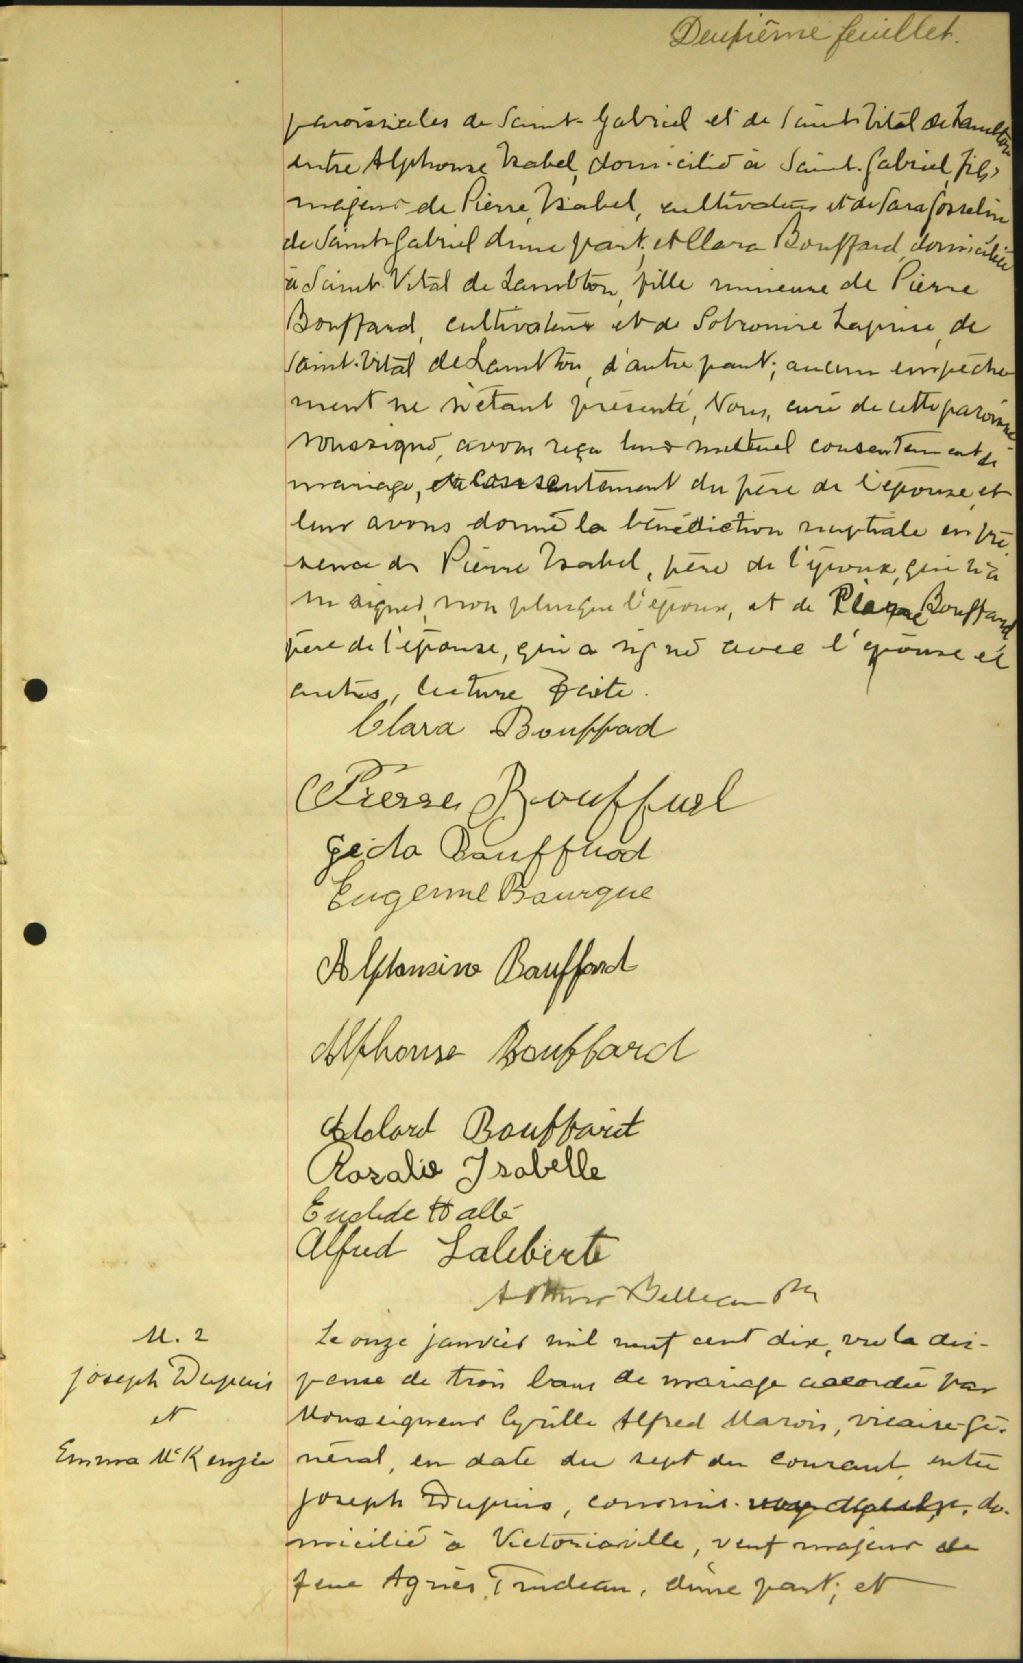 Deuxième feuillet.
paroissiales de Saint-Gabriel et de Saint-Vital de Lambton
entre Alphonse Isabel, domicilié à Saint-Gabriel, fils
majeur de Pierre Isabel, cultivateur et de Sara Gosselin
de Saint-Gabriel d'une part; et Clara Bouffard, domiciliée
à Saint-Vital de Lambton, fille mineure de Pierre
Bouffard, cultivateur et de Laprise, de
Saint-Vital de Lambton, d'autre part; aucun empêche
ment ne s'étant présenté, Nous, curé de cette paroisse
soussigné, avons reçu leur mutuel consentement de
mariage, consentement du père de l'épouse, et
leur avons donné la bénédiction nuptiale en pré
sence de Pierre Isabel, père de l'époux, qui n'a
su signer, non plus que l'époux, et de Pierre Bouffard
père de l'épouse, qui a signé avec l'épouse et
autres, lecture faite.
Clara Bouffad
Pierre Bouffard
Bouffard
Eugenne Bourque
Alphonsine Bouffard
Alphonse Bouffard
Adlard Bouffard
Rosalie Isabelle
Euclide Hallé
Alfred Laliberté
Arthur Belleau Ptr
M. 2
Joseph Dupuis
et
Emma McKenzie
Le onze janvier mil neuf cent dix, vu la dis-
pense de trois bans de mariage accordée par
Monseigneur Cyrille Alfred Marois, vicaire-gé-
néral, en date du sept du courant, entre
Joseph Dupuis, commis do-
micilié à Victoriaville, veuf majeur de
feue Agnès Trudeau, d'une part; et